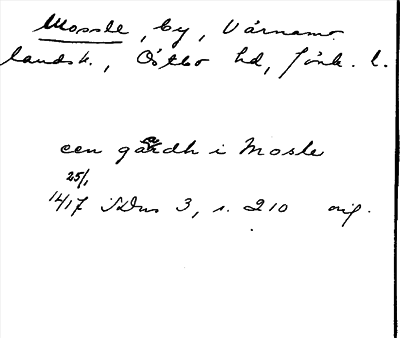 Mossle, by, Värnamo
landsk., Östbo hd, Jönk. l.
een gardh i Mosle
25/1
1417 SDns 3, s. 210 orig.